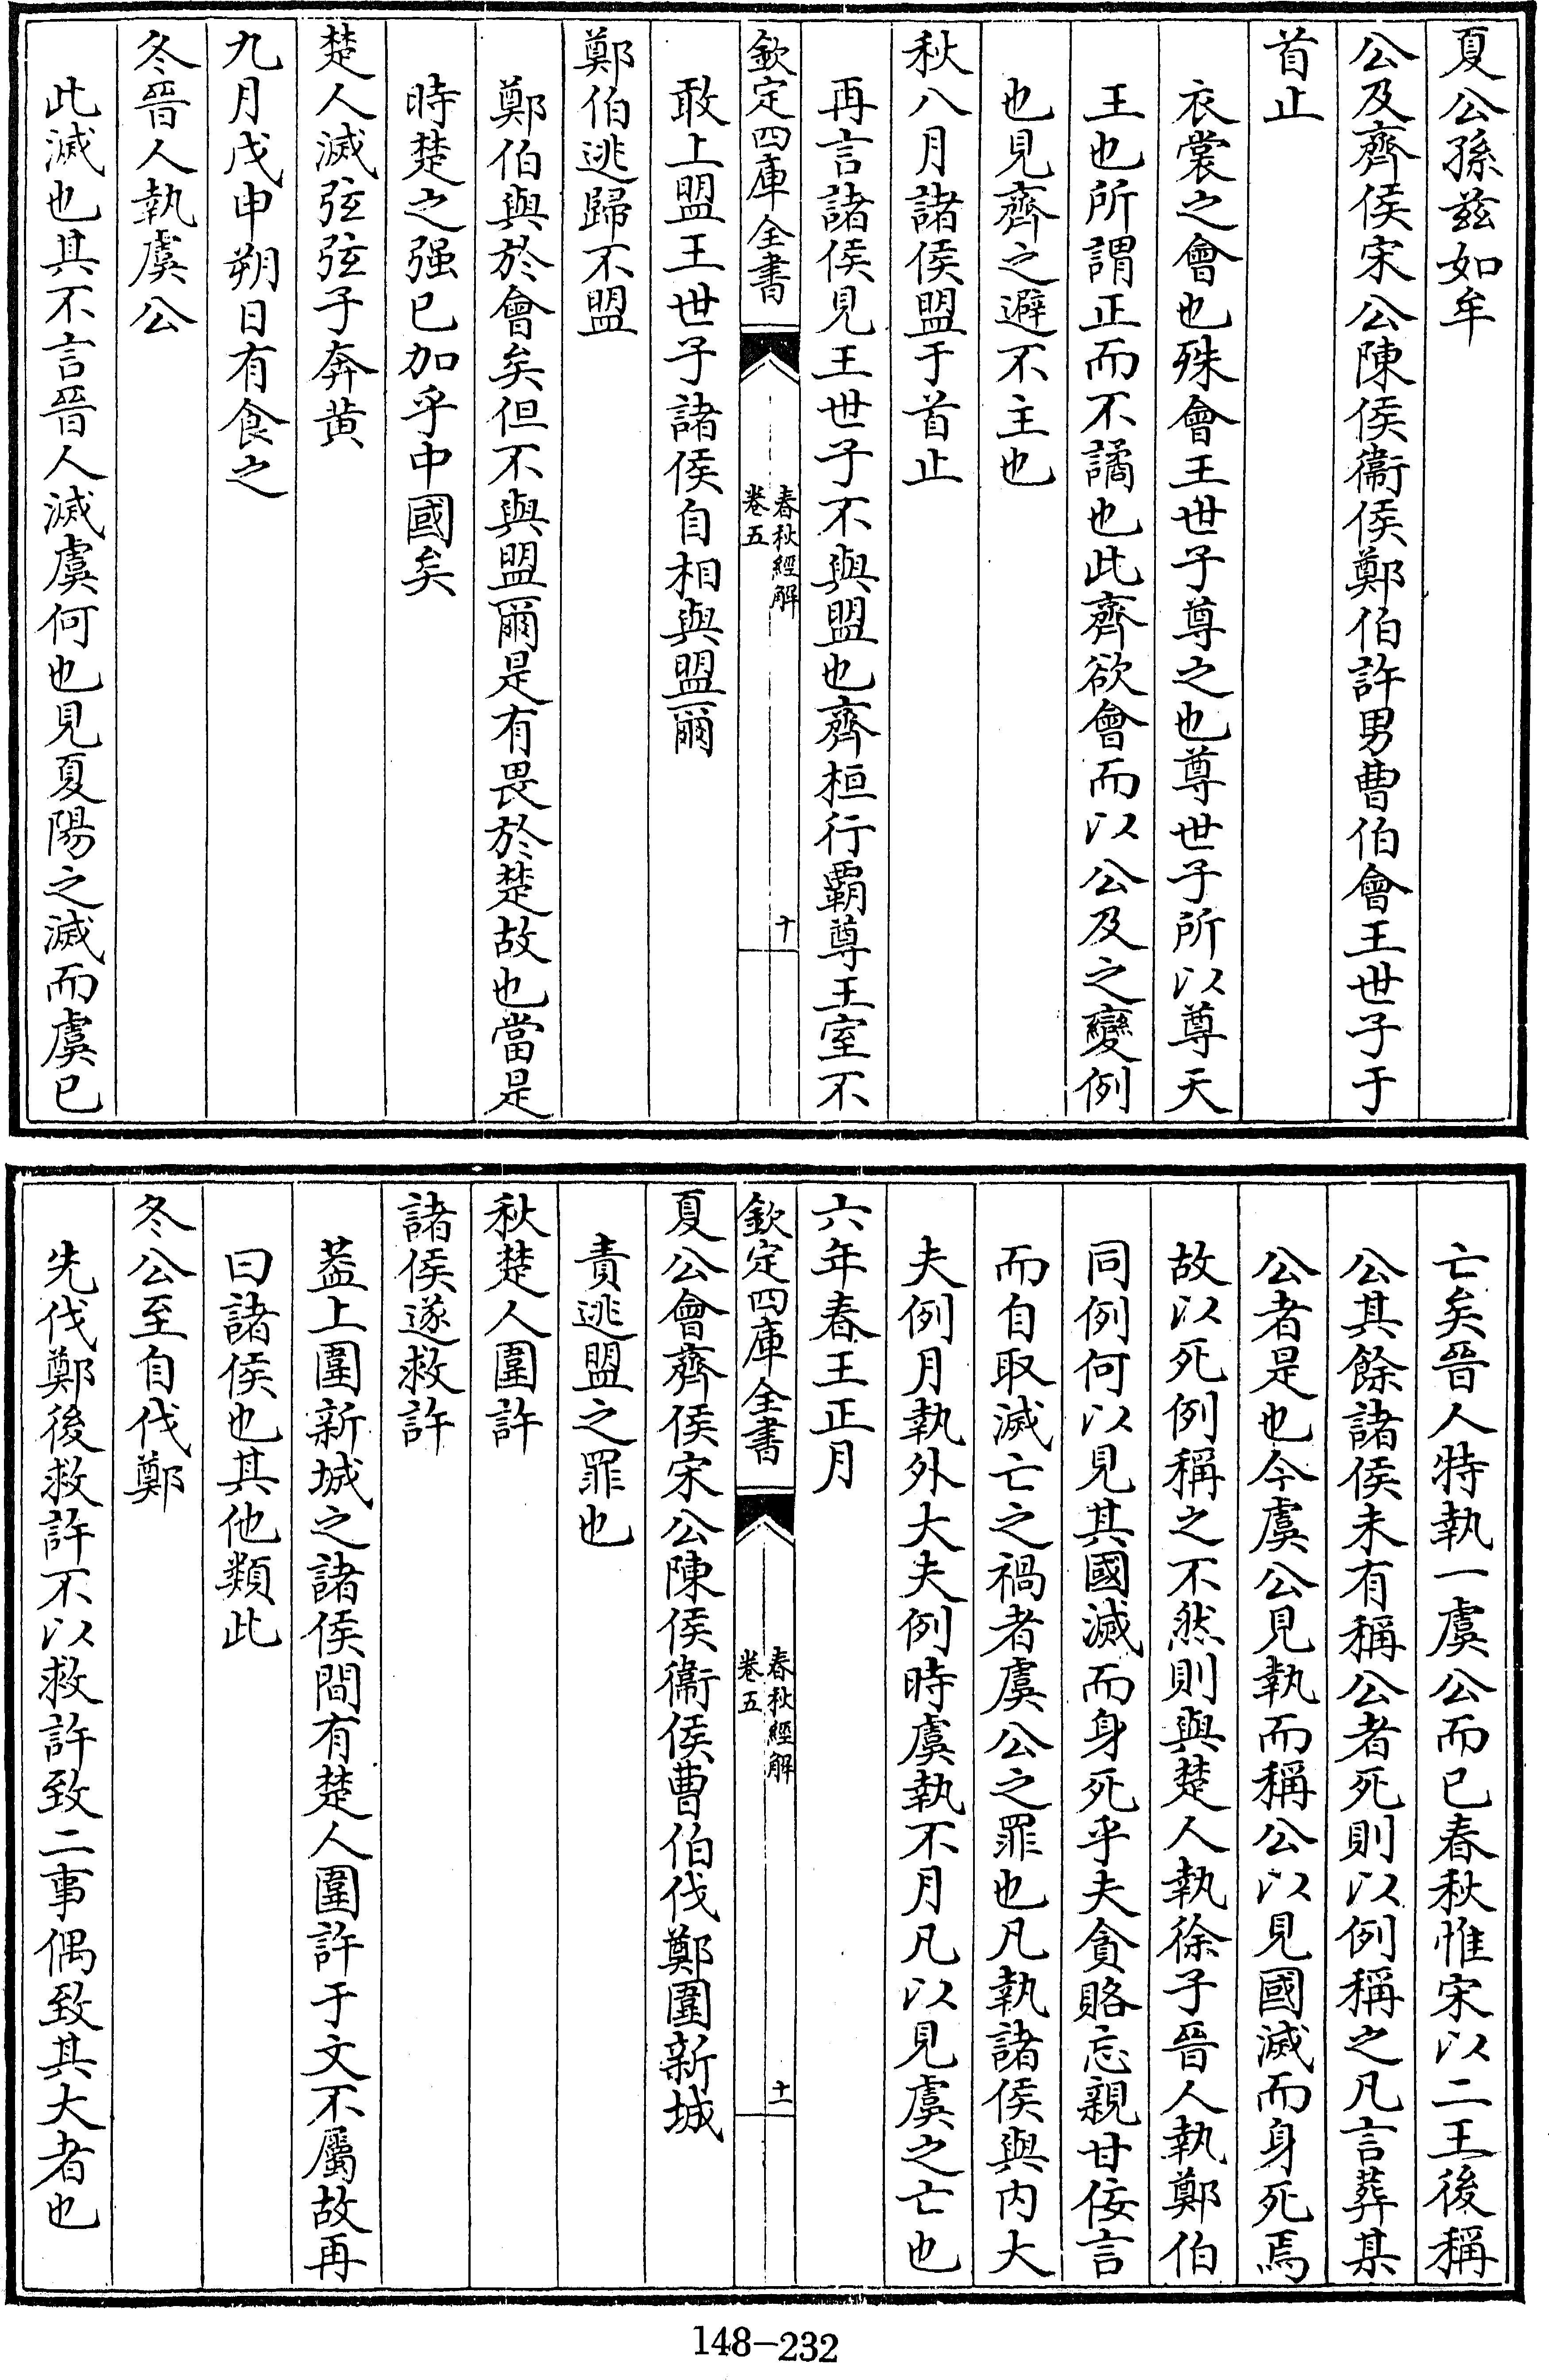 夏公孫茲如牟
公及齊侯宋公陳侯衞侯鄭伯許男曹伯會王世子于
首止
衣裳之會也殊會王世子尊之也尊世子所以尊天
王也所謂正而不譎也此齊欲會而以公及之變例
也見齊之避不主也
秋八月諸侯盟于首止
再言諸侯見王世子不與盟也齊桓行霸尊王室不
欽定四庫全書
春秋經解
卷五
十
敢上盟王世子諸侯自相與盟爾
鄭伯逃歸不盟
鄭伯與於會矣但不與盟爾是有畏於楚故也當是
時楚之强已加乎中國矣
楚人滅弦弦子奔黄
九月戊申朔日有食之
冬晉人執虞公
此滅也其不言晉人滅虞何也見夏陽之滅而虞已
亡矣晉人特執一虞公而已春秋惟宋以二王後稱
公其餘諸侯未有稱公者死則以例稱之凡言葬某
公者是也今虞公見執而稱公以見國滅而身死焉
故以死例稱之不然則與楚人執徐子晉人執鄭伯
同例何以見其國滅而身死乎夫貪賂忘親甘佞言
而自取滅亡之禍者虞公之罪也凡執諸侯與内大
夫例月執外大夫例時虞執不月凡以見虞之亡也
六年春王正月
欽定四庫全書
春秋經解
卷五
十一
夏公會齊侯宋公陳侯衞侯曹伯伐鄭圍新城
責逃盟之罪也
秋楚人圍許
諸侯遂救許
葢上圍新城之諸侯間有楚人圍許于文不屬故再
曰諸侯也其他類此
冬公至自伐鄭
先伐鄭後救許不以救許致二事偶致其大者也
148-232